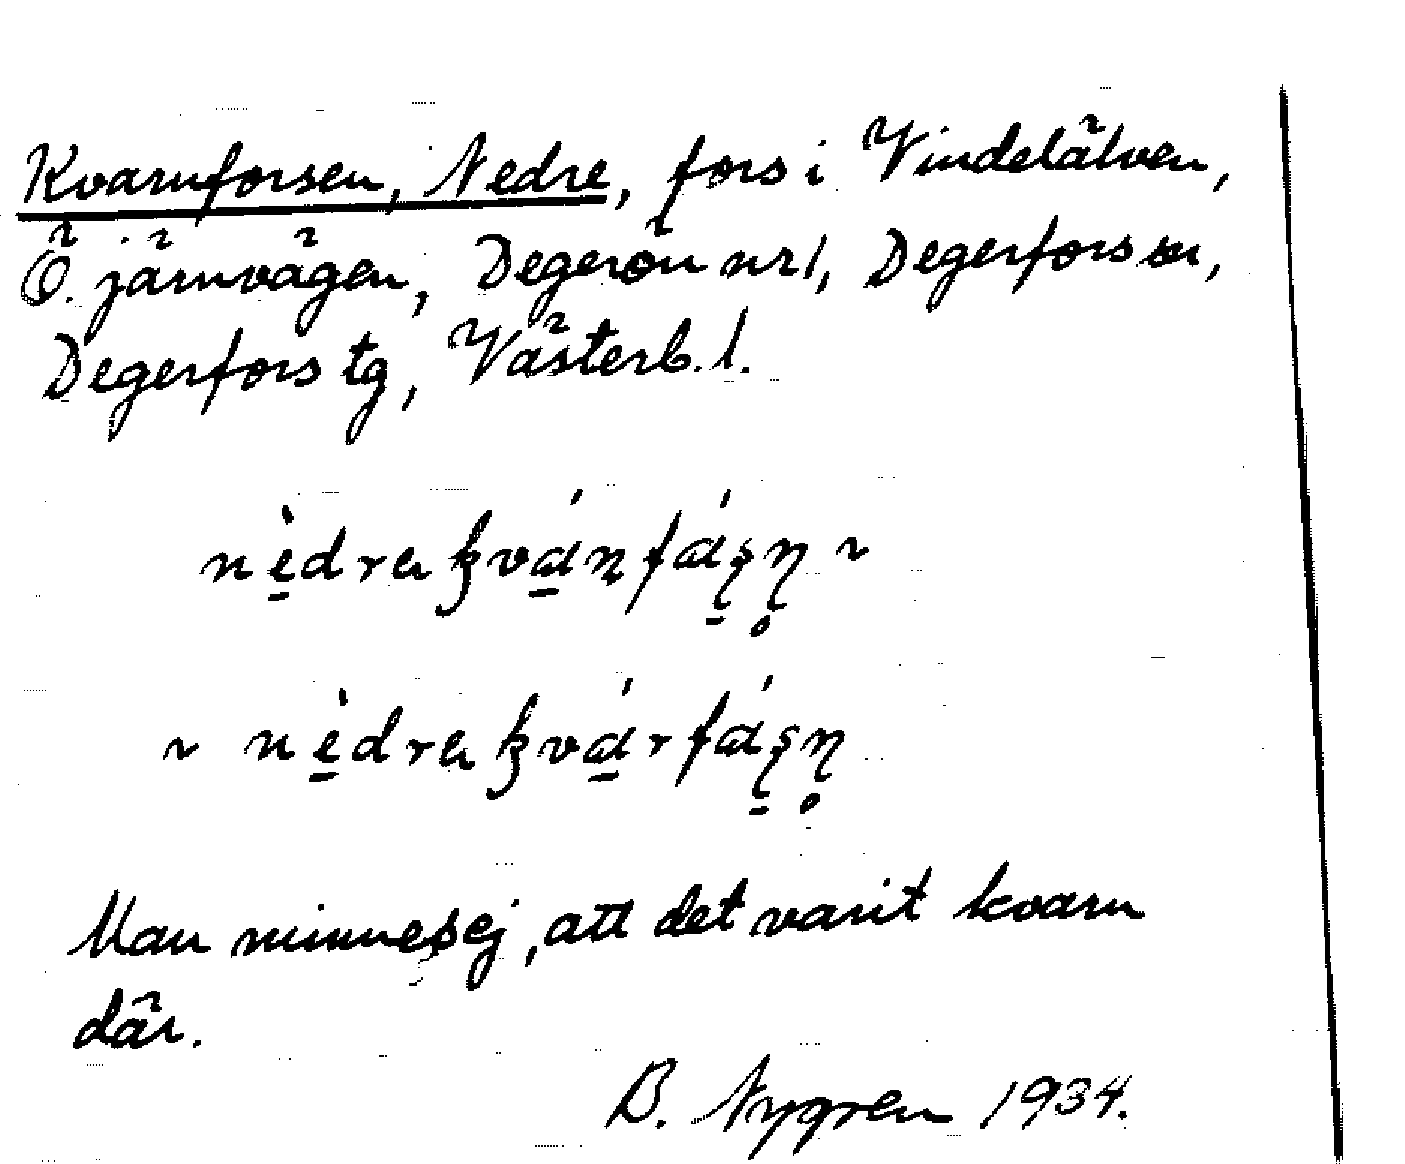 Kvarnforsen, Nedre, fors i Vindelälven,
Ö. järnvägen, Degerön nr 1, Degerfors sn,
Degerfors tg, Västerb. l.
nè̱dra kvá̱ɳfáʂɳ̥ ~
~ nè̱dra kvá̱rfáʂɳ̥
Man minnes ej, att det varit kvarn
där.
B. Nygren 1934.